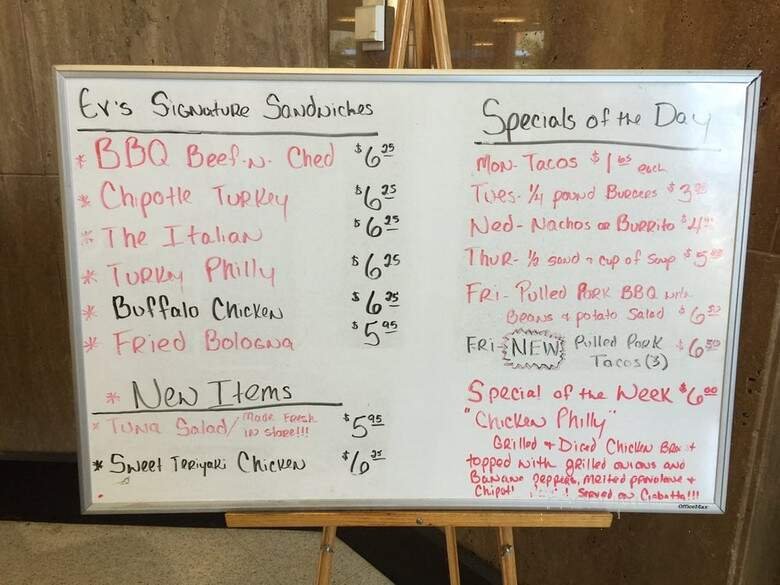 Ev's Signature Sandwiches
* BBQ Beef-N-Ched $6 25
* Chipotle Turkey $6 25
* The Italian $6 25
* Turkey Philly $6 25
* Buffalo Chicken $6 25
* Fried Bologna $5 95
* New Items
* Tuna Salad/ Made Fresh in store!!! $5 95
* Sweet Teriyaki Chicken $6 25
Specials of the Day
Mon- Tacos $1 65 each
Tues- 1/4 pound Burgers $3
Wed- Nachos or Burrito $4
Thur- 1/2 sand & cup of soup $5
Fri- Pulled Pork BBQ with
Beans & potato Salad $6 50
Fri- NEW Pulled Pork $6 50
Tacos (3)
Special of the Week $6 00
"Chicken Philly"
Grilled & Diced Chicken
topped with grilled onions and
Banana peppers, melted provolone &
served on Ciabatta!!!
OfficeMax